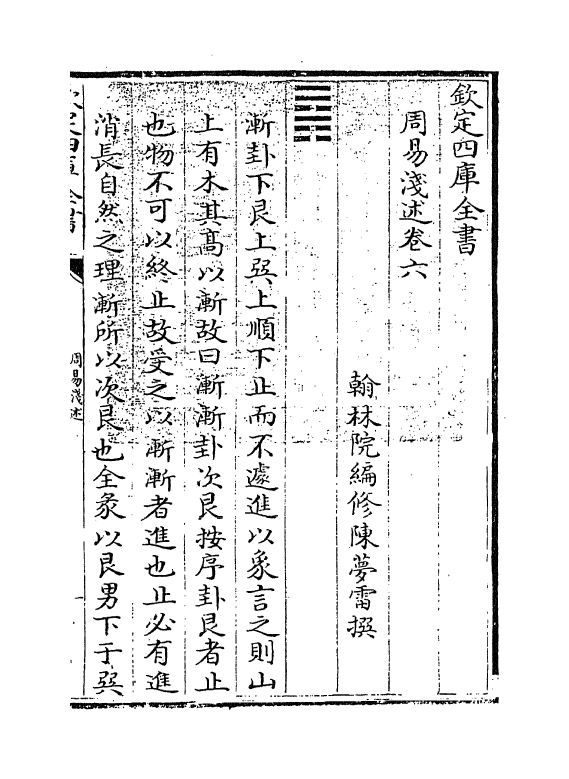 欽定四庫全書
周易淺述卷六
翰林院編修陳夢雷撰
漸卦下艮上巽上順下止而不遽進以象言之則山
上有木其髙以漸故曰漸漸卦次艮按序卦艮者止
也物不可以終止故受之以漸漸者進也止必有進
消長自然之理漸所以次艮也全彖以艮男下于巽
欽定四庫全書
周易淺述
一